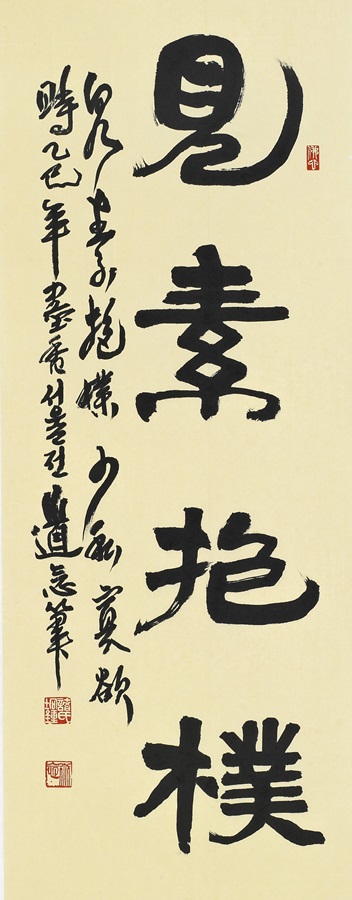 見素抱樸
見素抱樸少私寡欲
時乙巳年墨香서울전 道筆